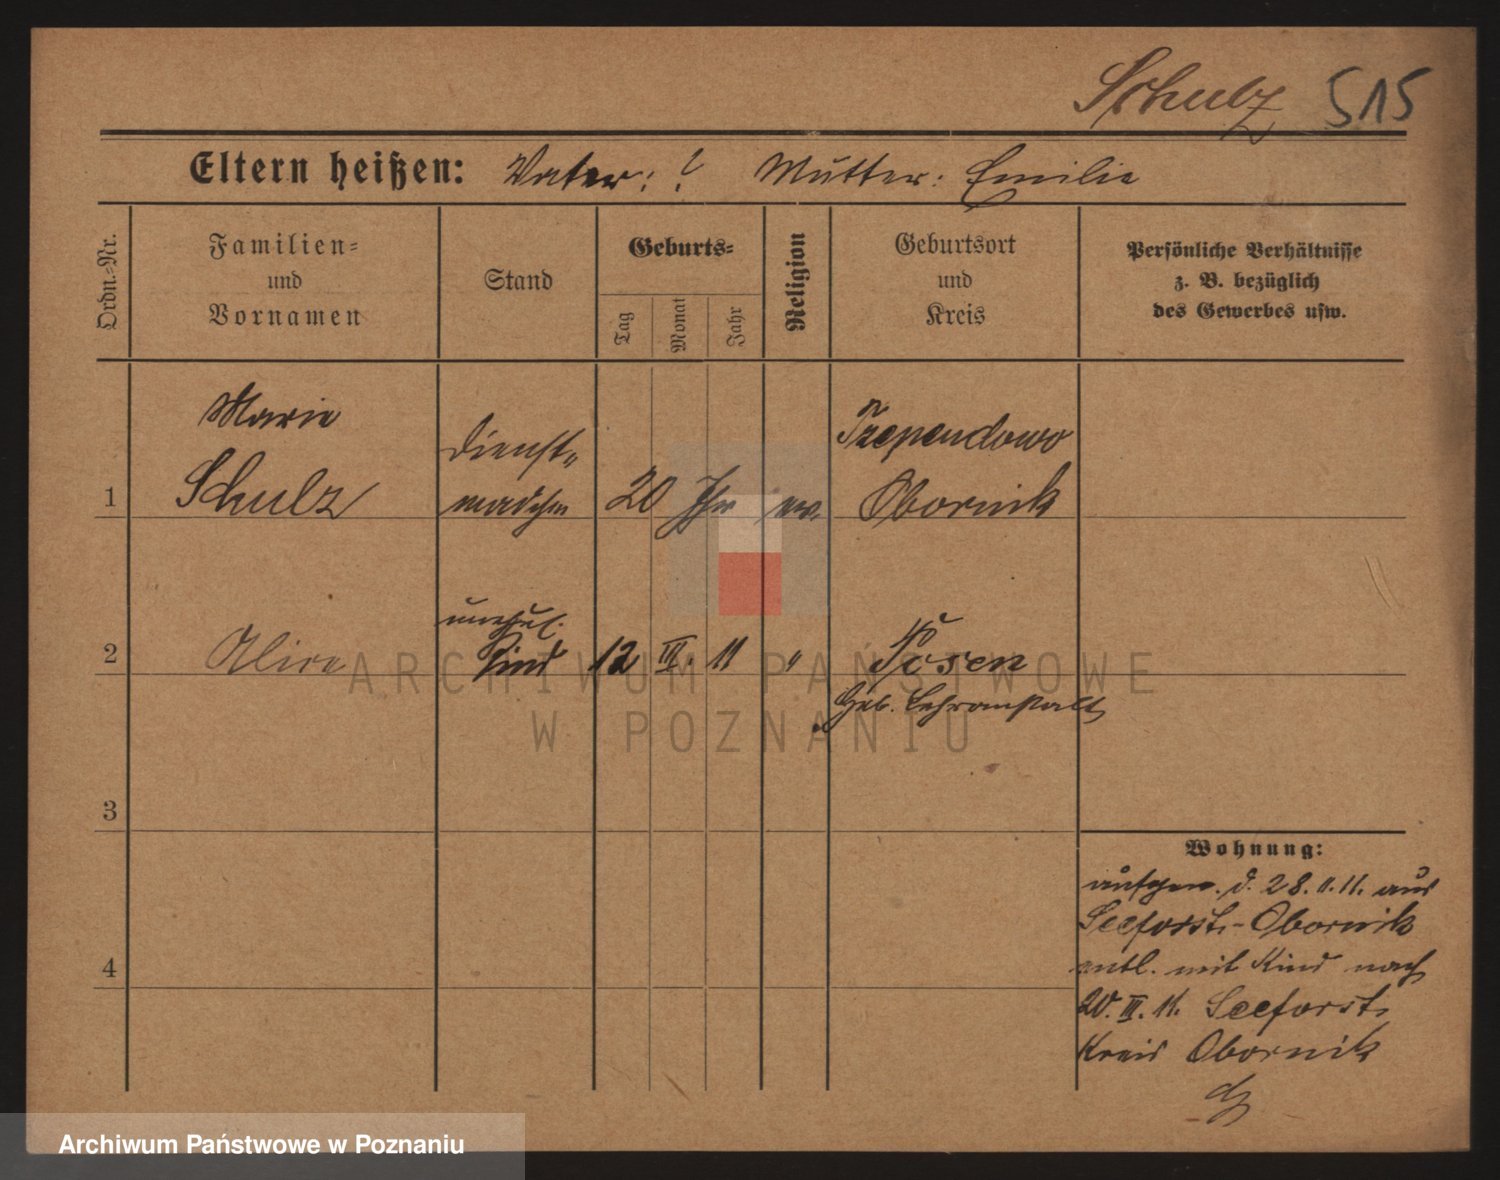 Schulz 515
Eltern heißen: Vater: ? Mutter: Emilie
Ordn.-Nr.
Familien- und Vornamen
Stand
Geburts-
Tag
Monat
Jahr
Religion
Geburtsort und Kreis
Persönliche Verhältnisse z. B. bezüglich des Gewerbes usw.
Marie
Schulz
Dienst-
mädchen
20 Jhr
ev.
Obornik
1
2
unehel.
Kind
12 III. 11 "
Posen
Geb. Lehranstalt
3
4
Wohnung:
aufgen. d. 28. II. 11. aus
Seeforst-Obornik
entl. mit Kind nach
20. III. 11. Seeforst,
Kreis Obornik
ARCHIWUM PAŃSTWOWE
W POZNANIU
Archiwum Państwowe w Poznaniu